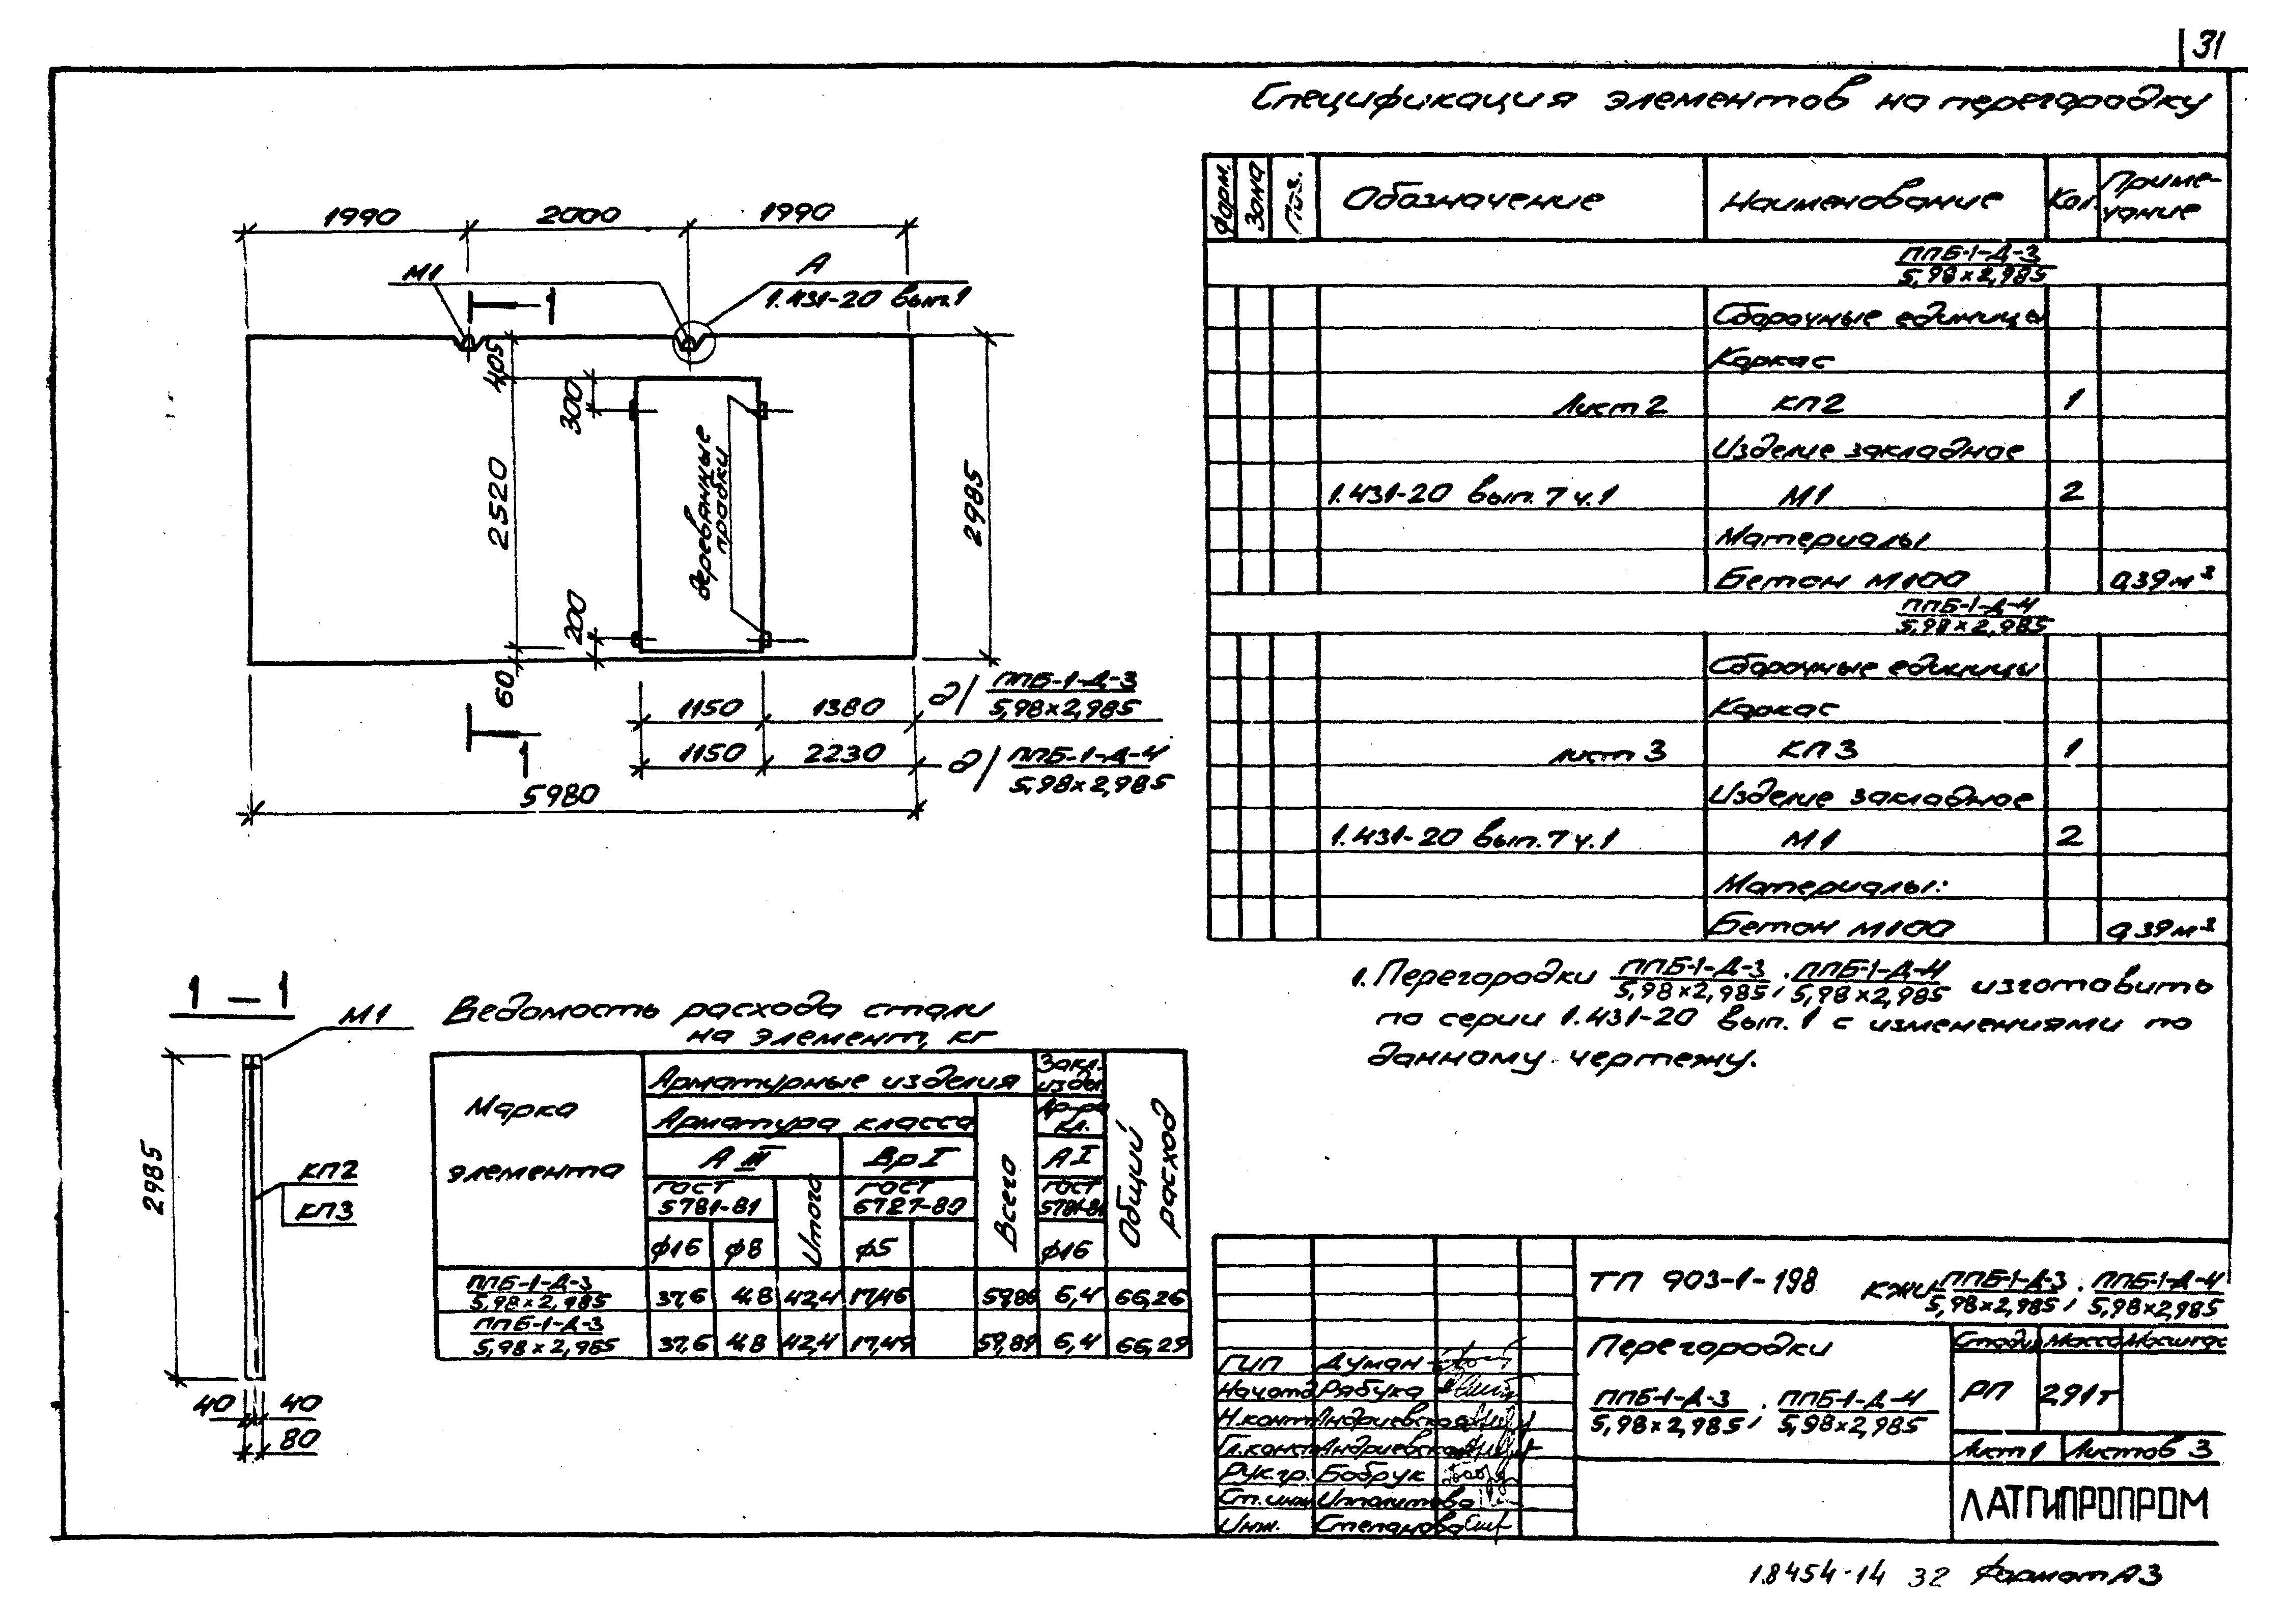 31
Спецификация элементов на перегородку
Форм. Зона Поз. Обозначение Наименование Кол. Приме-
чание
ППБ-1-Д-3
5,98×2,985
Сборочные единицы
Каркас
Лист 2 КП2 1
Изделие закладное
1.431-20 вып. 7 ч.1 М1 2
Материалы
Бетон М100 0,39м³
ППБ-1-Д-4
5,98×2,985
Сборочные единицы
Каркас
Лист 3 КП3 1
Изделие закладное
1.431-20 вып. 7 ч.1 М1 2
Материалы:
Бетон М100 0,39м³
1. Перегородки ППБ-1-Д-3 / 5,98×2,985, ППБ-1-Д-4 / 5,98×2,985 изготовить
по серии 1.431-20 вып. 1 с изменениями по
данному чертежу.
1990 2000 1990
М1
А
1.431-20 вып.1
1
405
300
2520
деревянные
пробки
2985
200
60
1
1150 1380 д/ ППБ-1-Д-3
5,98×2,985
1150 2230 д/ ППБ-1-Д-4
5,98×2,985
5980
1-1
М1
2985
КП2
КП3
40 40
80
Ведомость расхода стали
на элемент, кг
Марка
элемента
Арматурные изделия
Закл.
издел.
Арматура класса
Ар-ра
кл.
А III Вр I А I
ГОСТ
5781-81
Итого
ГОСТ
6727-80
Всего
ГОСТ
5781-81
Общий
расход
ф16 ф8 ф5 ф16
ППБ-1-Д-3
5,98×2,985
37,6 4,8 42,4 17,46 59,86 6,4 66,26
ППБ-1-Д-3
5,98×2,985
37,6 4,8 42,4 17,49 59,89 6,4 66,29
ТП 903-1-198 КЖИ ППБ-1-Д-3 / 5,98×2,985, ППБ-1-Д-4 / 5,98×2,985
Перегородки
ППБ-1-Д-3 / 5,98×2,985, ППБ-1-Д-4 / 5,98×2,985
Стадия Масса Масштаб
РП 2,91т
Лист 1 Листов 3
ЛАТГИПРОПРОМ
ГИП Думан
Нач.отд Рябука
Н.конт Андриевская
Гл.конст Андриевская
Рук.гр. Бобрук
Ст.инж Ипполитова
Инж. Степанова
18454-14 32 Формат А3